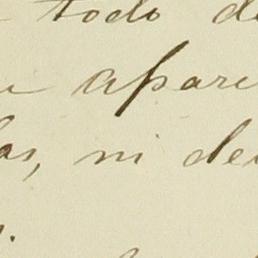 todo d
apare
las, ni de